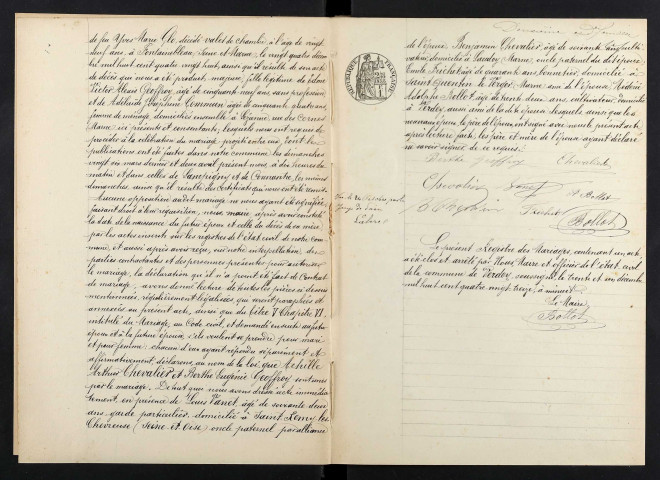 de feu Yves Marie Glo, décédé valet de chambre, à l'âge de vingt
neuf ans, à Fontainebleau, Seine et Marne, le vingt quatre décem
bre mil huit cent quatre vingt huit, ainsi qu'il résulte de son acte
de décès qui nous a été produit, majeure, fille légitime de
Victor Alexis Geoffroy, âgé de cinquante neuf ans, sans profession
et de Adélaïde Commun, âgée de cinquante quatre ans,
femme de ménage, domiciliés ensemble à rue des Cornes
Marne, ici présents et consentants; lesquels nous ont requis de
procéder à la célébration du mariage projeté entre eux, dont les
publications ont été faites dans notre commune, les dimanches
vingt six mars dernier et deux avril présent mois, à dix heures du
matin et dans celles de et Connantre, les mêmes
dimanches, ainsi qu'il résulte des certificats qui nous ont été remis
Aucune opposition audit mariage ne nous ayant été signifiée
faisant droit à leur réquisition, nous maire après avoir constaté
la date de la naissance du futur époux et celle du décès de sa mère
par les actes inscrits sur les registres de l'état civil de notre com
mune, et aussi après avoir reçu, sur notre interpellation, des
parties contractantes et des personnes présentes pour autoriser
le mariage, la déclaration qu'il n'a point été fait de contrat
de mariage, avons donné lecture de toutes les pièces ci-dessus
mentionnées, régulièrement légalisées, qui seront paraphées et
annexées au présent acte, ainsi que du titre V Chapitre VI
intitulé du Mariage, au Code civil, et demandé ensuite au futur
époux et à la future épouse, s'ils veulent se prendre pour mari
et pour femme; chacun d'eux ayant répondu séparément et
affirmativement, déclarons au nom de la loi, que Achille
Arthur Chevalier et Berthe Eugénie Geoffroy sont unis
par le mariage. De tout quoi nous avons dressé acte immédia
tement, en présence de Louis Vanet, âgé de soixante deux
ans, garde particulier, domicilié à Saint Remy les
Chevreuse (Seine et Oise) oncle paternel par alliance
de l'époux, Benjamin Chevalier, âgé de soixante cinq ans, culti
vateur, domicilié à Marne, oncle paternel du de l'époux
Emile âgé de quarante ans, bonnetier, domicilié à
Saint Quentin le Verger, Marne, ami de l'époux,
Adolphe Bollot, âgé de trente deux ans, cultivateur, domicilié
à Verdey, aussi ami de la de l'épouse, lesquels, ainsi que les
nouveaux époux, le père de l'époux, ont signé avec nous le présent acte
après lecture faite, les père et mère de l'épouse ayant déclaré
ne savoir signer de ce requis.
RÉPUBLIQUE FRANÇAISE
Berthe Geoffroy Chevalier
Chevalier Vanet A Bollot
Bollot
Le présent Registre des Mariages, contenant un acte,
a été clos et arrêté par Nous Maire et officier de l'état civil
de la commune de Verdey, ce trente et un décembre
mil huit cent quatre vingt treize, à minuit.
Le Maire
Bollot